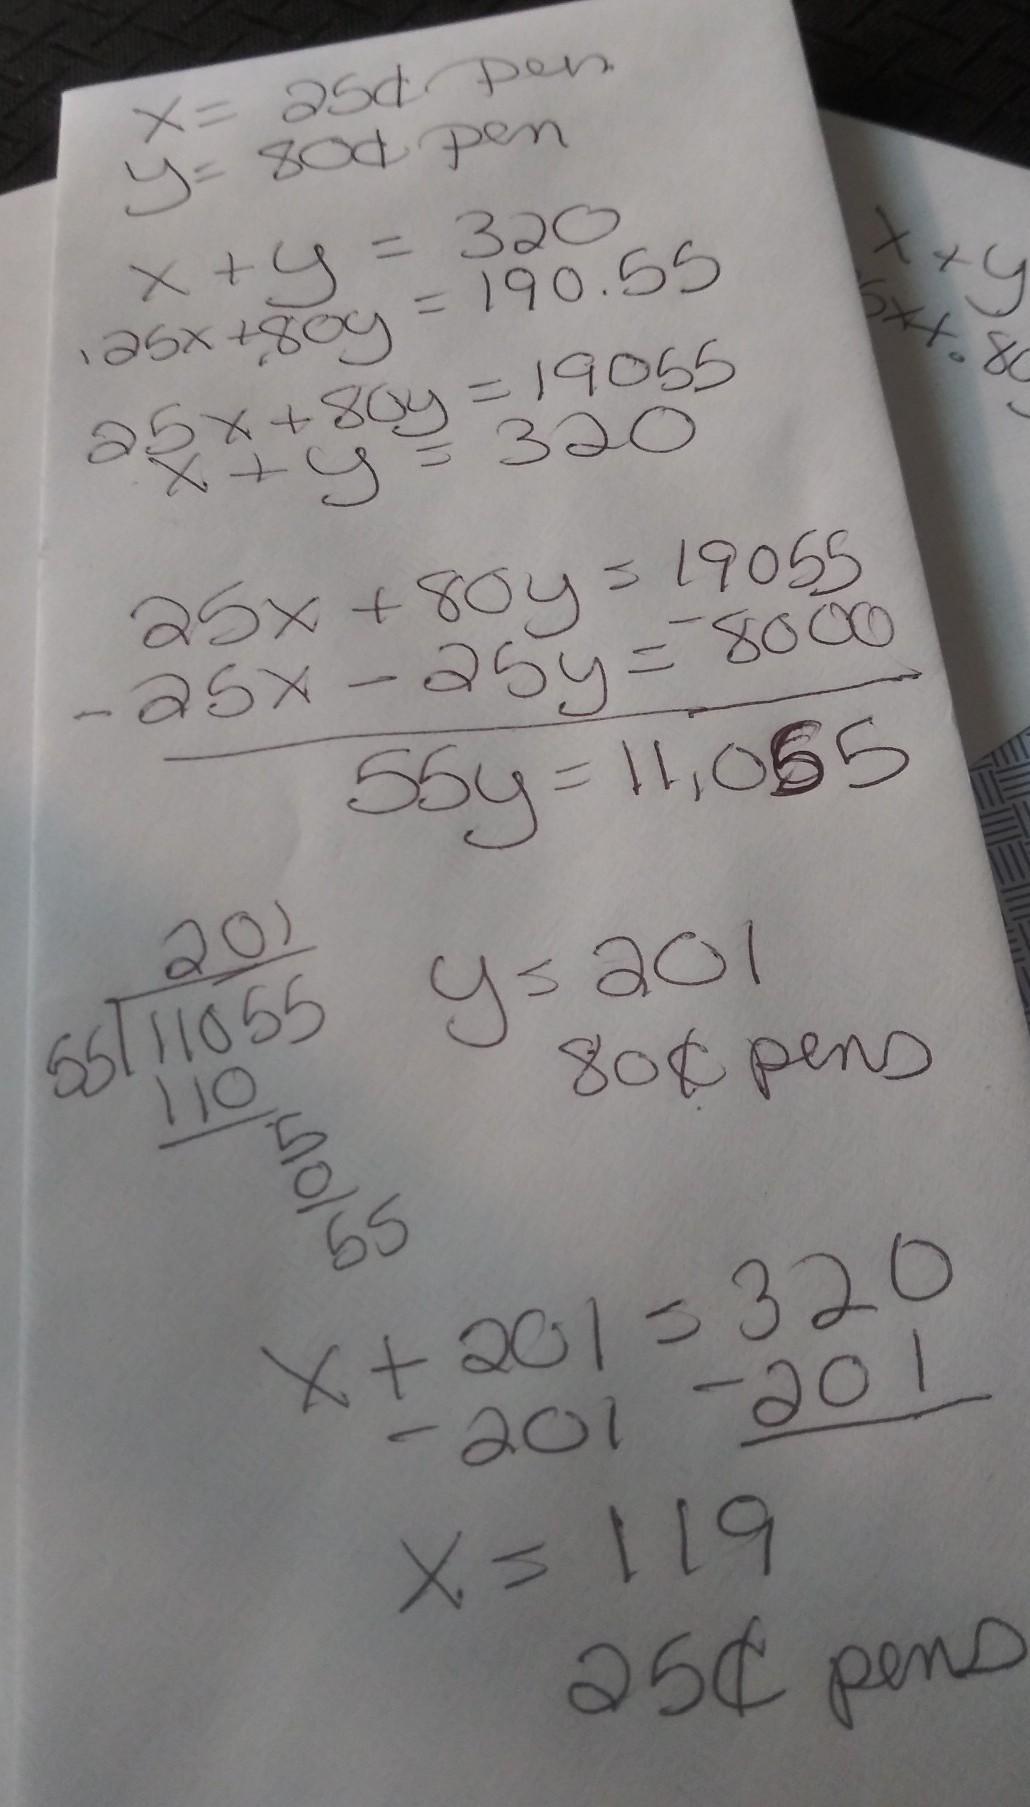 x = 25¢ pen
y = 80¢ pen
x + y = 320
.25x + .80y = 190.55
25x + 80y = 19055
x + y = 320
25x + 80y = 19055
-25x - 25y = -8000
55y = 11,055
201
55)11055
110
55
0/
55
y = 201
80¢ pens
x + 201 = 320
-201 -201
x = 119
25¢ pens
x + y
5x + .80